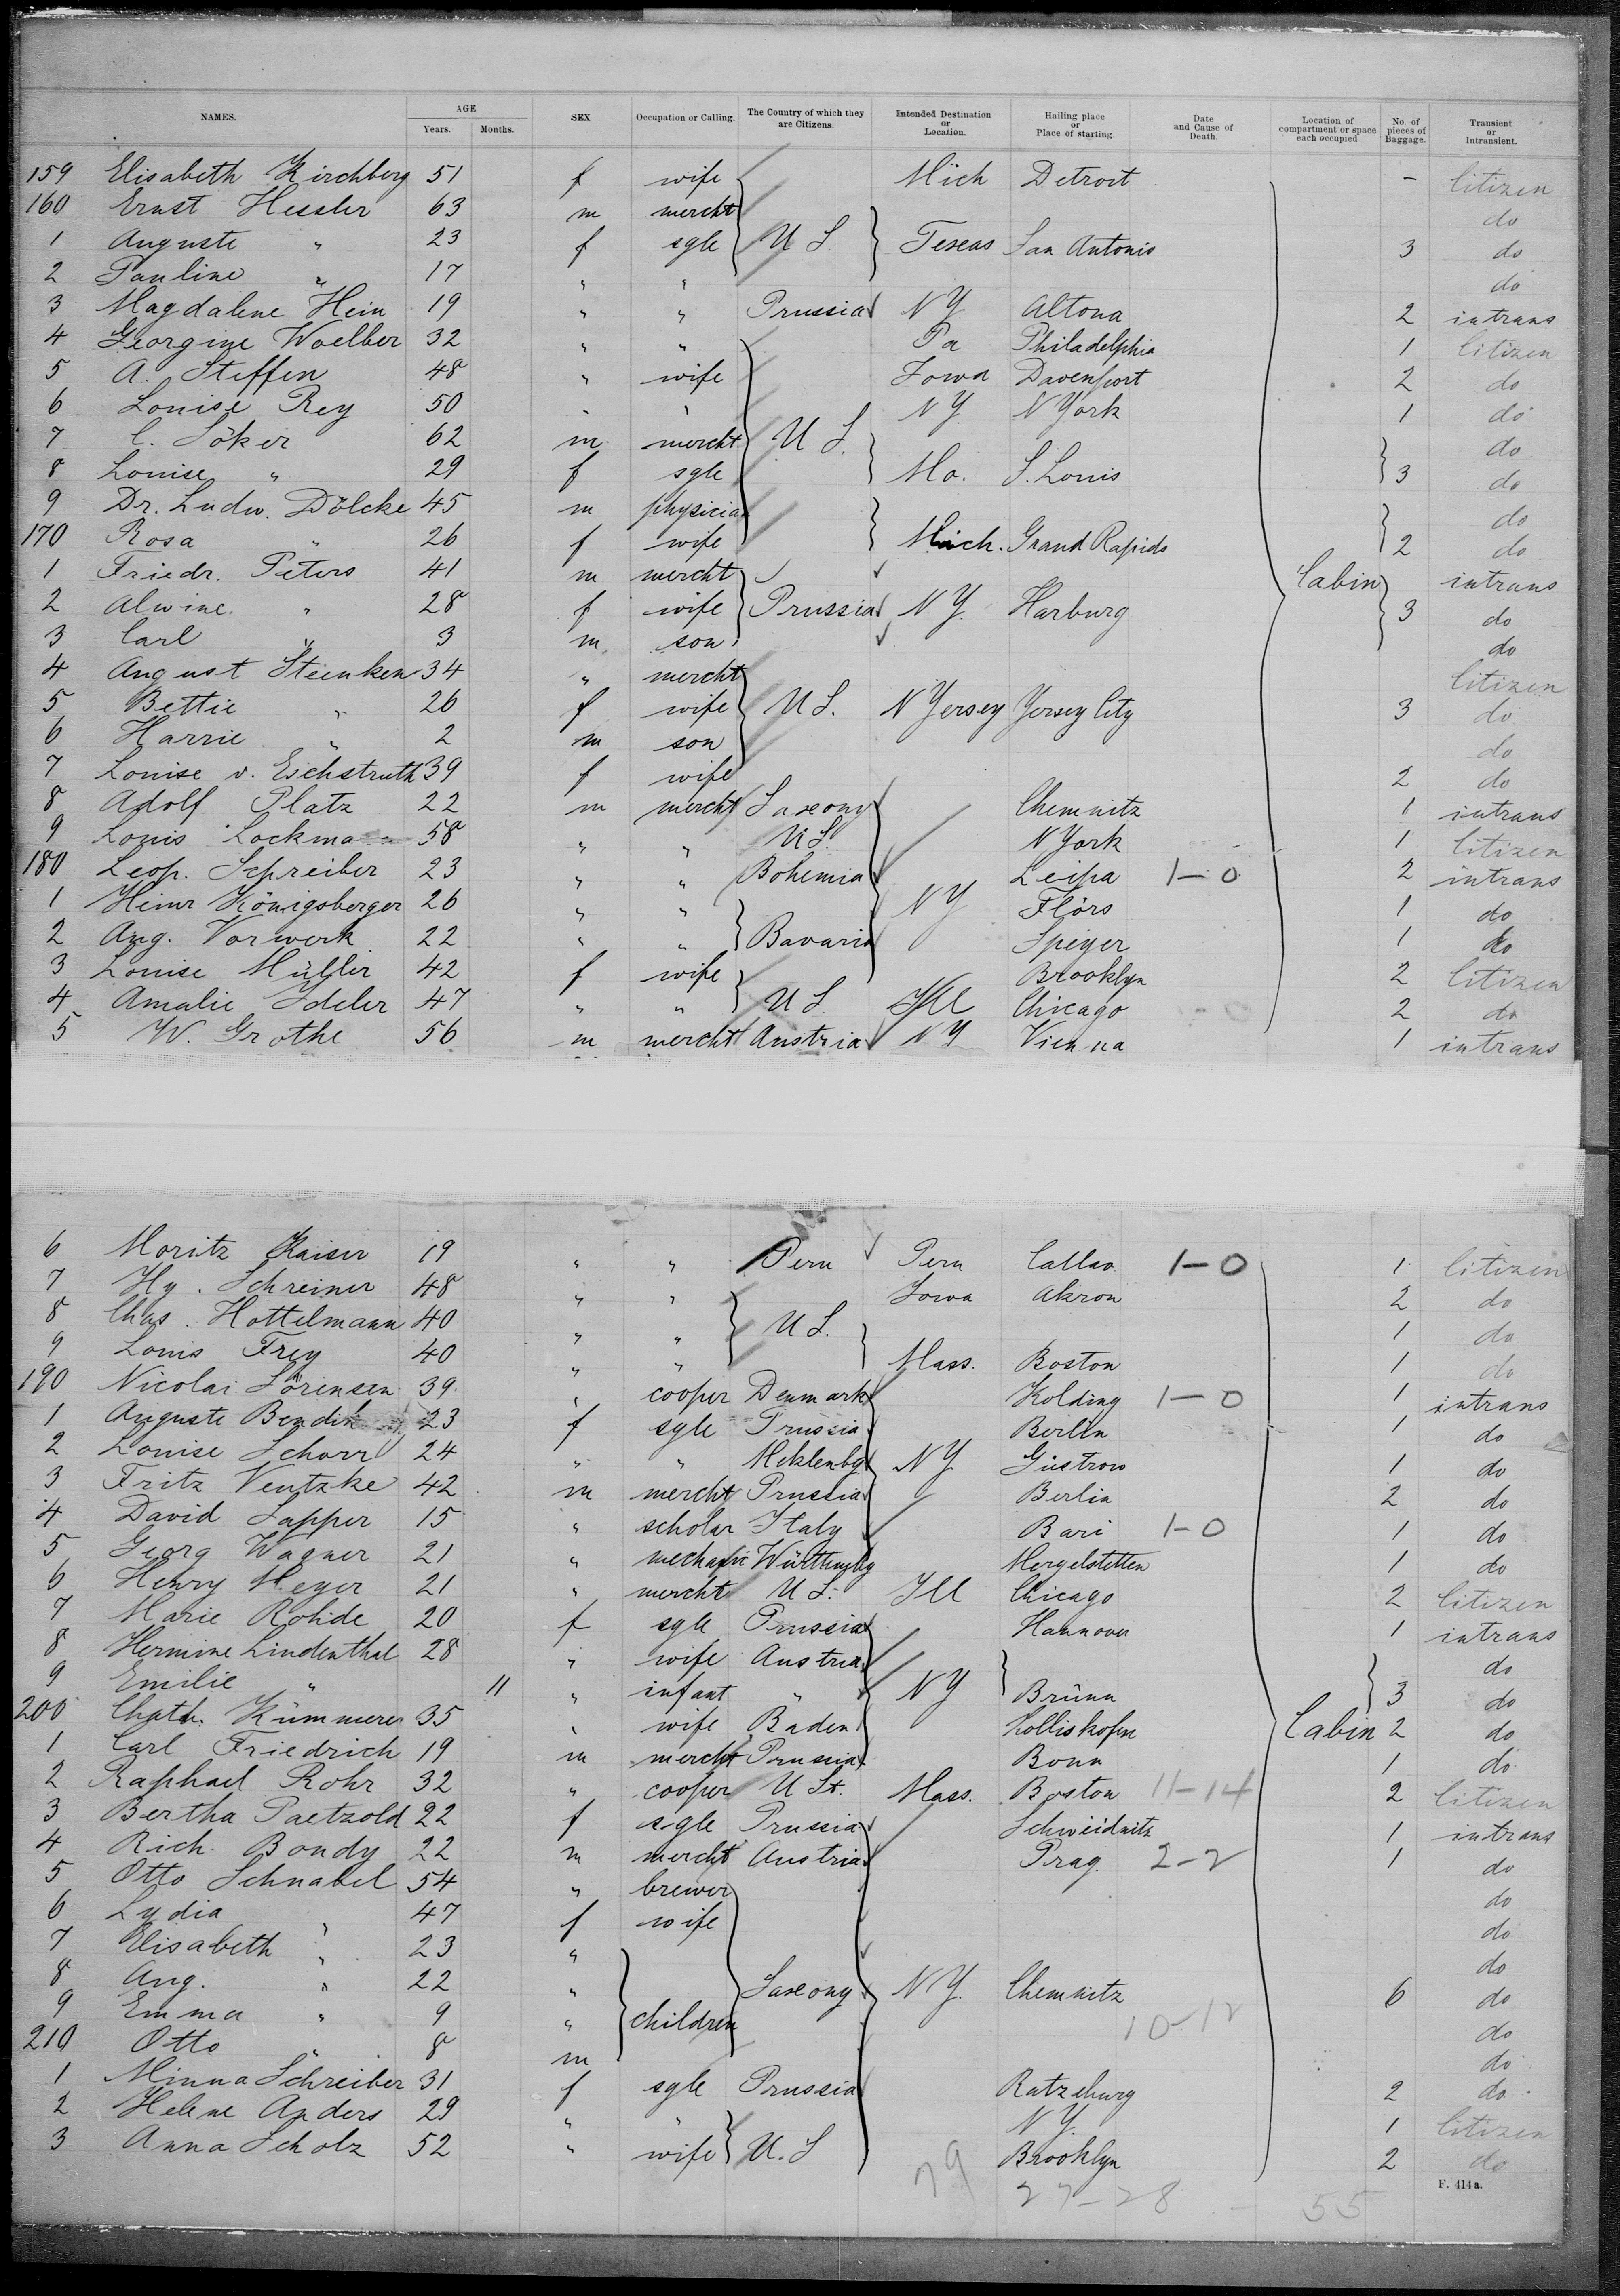 NAMES. AGE Years. Months. SEX Occupation or Calling. The Country of which they are Citizens. Intended Destination or Location. Hailing place or Place of starting. Date and Cause of Death. Location of compartment or space each occupied No. of pieces of Baggage. Transient or Intransient.
159 Elisabeth Kirchberg 51 f wife Mich Detroit - Citizen
160 Ernst Hessler 63 m mercht do
1 Auguste " 23 f sgle U S. Texas San Antonio 3 do
2 Pauline " 17 " " do
3 Magdalene Hein 19 " " Prussia N Y Altona 2 intrans
4 Georgine Woelber 32 " " Pa Philadelphia 1 Citizen
5 A. Steffen 48 " wife Iowa Davenport 2 do
6 Louise Rey 50 " " N Y. N York 1 do
7 C. Söker 62 m mercht U S. do
8 Louise " 29 f sgle Mo. S. Louis 3 do
9 Dr. Ludw. Dölcke 45 m physician do
170 Rosa " 26 f wife Mich. Grand Rapids 2 do
1 Friedr. Peters 41 m mercht Cabin intrans
2 Alwine " 28 f wife Prussia N Y. Harburg 3 do
3 Carl " 3 m son do
4 August Steenken 34 " mercht Citizen
5 Bettie " 26 f wife U S. N Yersey Yersey City 3 do
6 Harrie " 2 m son do
7 Louise v. Eschstruth 39 f wife 2 do
8 Adolf Platz 22 m mercht Saxony Chemnitz 1 intrans
9 Louis Lockma 58 " " U S. N York 1 Citizen
180 Leop. Schreiber 23 " " Bohemia Leipa 1-0 2 intrans
1 Heinr Königsberger 26 " " N Y Flörs 1 do
2 Aug. Vorwerk 22 " " Bavaria Speyer 1 do
3 Louise Müller 42 f wife Brooklyn 2 Citizen
4 Amalie Ideler 47 " " U S. Ill Chicago 2 do
5 W. Grothe 56 m mercht Austria N Y Vienna 1 intrans
6 Moritz Kaiser 19 " " Peru Peru Callao 1-0 1 Citizen
7 Hy. Schreiner 48 " " Iowa Akron 2 do
8 Chas. Hottelmann 40 " " U S. 1 do
9 Louis Frey 40 " " Mass. Boston 1 do
190 Nicolai Sörensen 39 " cooper Denmark Kolding 1-0 1 intrans
1 Auguste Bendix 23 f sgle Prussia Berlin 1 do
2 Louise Schorr 24 " " Meklenbg N Y Güstrow 1 do
3 Fritz Ventzke 42 m mercht Prussia Berlin 2 do
4 David Sapper 15 " scholar Italy Bari 1-0 1 do
5 Georg Wagner 21 " mechanic Württembg Mergelstetten 1 do
6 Henry Meyer 21 " mercht U S. Ill Chicago 2 Citizen
7 Marie Rohde 20 f sgle Prussia Hannover 1 intrans
8 Hermine Lindenthal 28 " wife Austria do
9 Emilie " 11 " infant " N Y Brünn 3 do
200 Chath. Kümmerer 35 " wife Baden Cabin 2 do
1 Carl Friedrich 19 m mercht Prussia Bonn 1 do
2 Raphael Rohr 32 " cooper U St. Mass. Boston 11-14 2 Citizen
3 Bertha Paetzold 22 f sgle Prussia Schweidnitz 1 intrans
4 Rich. Bondy 22 m mercht Austria Prag. 2-2 1 do
5 Otto Schnabel 54 " brewer do
6 Lydia " 47 f wife do
7 Elisabeth " 23 " do
8 Aug. " 22 " Saxony N Y. Chemnitz 6 do
9 Emma " 9 " children 10-12 do
210 Otto " 8 m do
1 Minna Schreiber 31 f sgle Prussia Ratzeburg 2 do
2 Helene Anders 29 " " N Y. 1 Citizen
3 Anna Scholz 52 " wife U. S Brooklyn 2 do
F. 414 a.
79 27-28 55